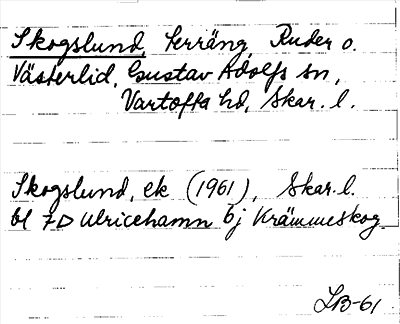 Skogslund, terräng, Ruder o.
Västerlid, Gustav Adolfs sn,
Vartofta hd, Skar. l.
Skogslund, ek (1961), Skar. l.
bl 7D Ulricehamn bj Krämmeskog.
LB-61